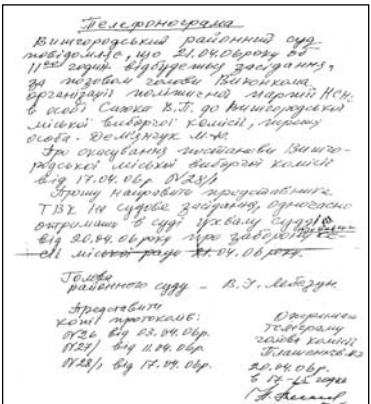 Телефонограма
Вишгородський районний суд
повідомляє, що 21.04.06 року об
11 00 годин відбудеться засідання,
за позовом голови виконкома
організації політичної партії НСНУ
в особі Сахока В.П. до Вишгородської
міської виборчої комісії, третя
особа - Дем'янчук М.Ю.
Про скасування постанови Вишго-
родської міської виборчої комісії
від 17.04.06р. №28/1
Прошу направити представника
ТВК на судове засідання, одночасно
отримавши в суді ухвалу судді
від 20.04.06 року про заборону
сії міської ради 21.04.06 року.
Голова
районного суду -
Представити
копії протоколів:
№26 від 03.04.06р.
№27/1 від 11.04.06р.
№28/1 від 17.04.06р.
Отримано
телеграму
голова комісії
20.04.06р.
в 17-15 годин